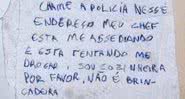 CHAME A POLICIA NESSE
ENDEREÇO MEU CHEF
ESTA ME ASSEDIANDO
E ESTA TENTANDO ME
DROGAR, SOU COZINHEIRA
POR FAVOR, NÃO É BRIN-
CADEIRA